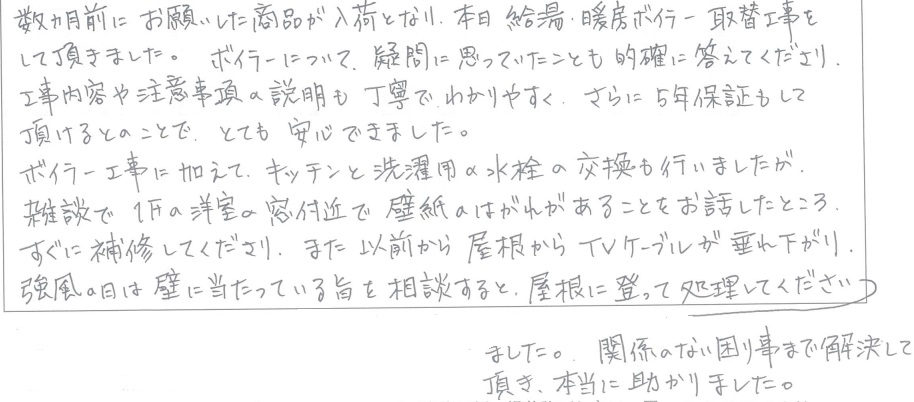 数カ月前にお願いした商品が入荷となり、本日 給湯・暖房ボイラー 取替工事を
して頂きました。 ボイラーについて、疑問に思っていたことも的確に答えてくださり、
工事内容や注意事項の説明も丁寧で、わかりやすく、さらに5年保証もして
頂けるとのことで、とても 安心できました。
ボイラー工事に加えて、キッチンと洗濯用の水栓の交換も行いましたが、
雑談で 1Fの洋室の窓付近で 壁紙のはがれがあることをお話したところ、
すぐに補修してくださり、また 以前から 屋根からTVケーブルが垂れ下がり、
強風の日は壁に当たっている旨を相談すると、屋根に登って処理してください
ました。 関係のない困り事まで解決して
頂き、本当に助かりました。